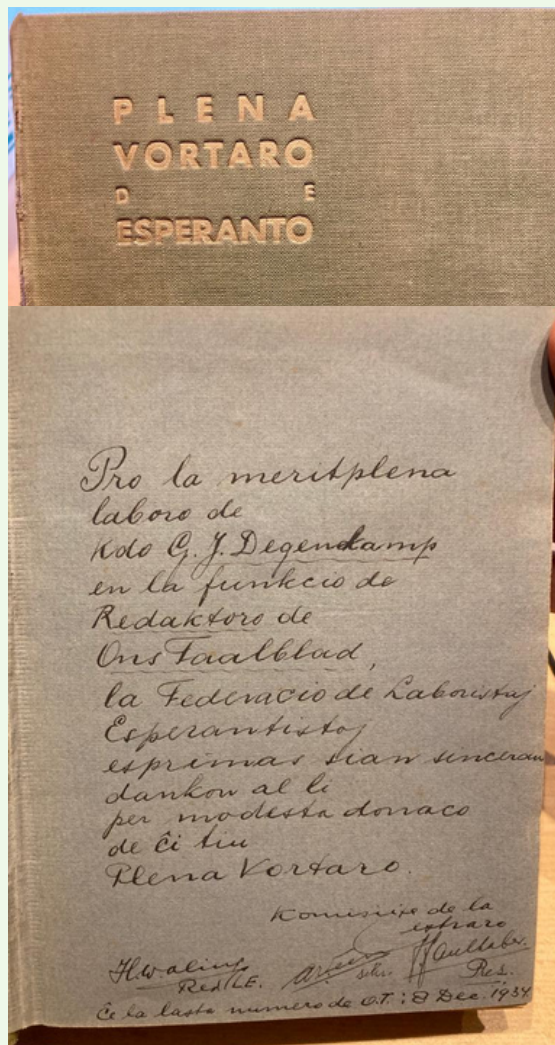 PLENA
VORTARO
D E
ESPERANTO
Pro la meritplena
laboro de
Kdo G. J. Degenkamp
en la funkcio de
Redaktoro de
Ons Taalblad,
la Federacio de Laboristaj
Esperantistoj
esprimas sian sinceran
dankon al li
per modesta donaco
de ĉi tiu
Plena Vortaro.
Komisiite de la
estraro
Red. L.E. sekr. Pres.
Ĉe la lasta numero de O.T.: 8 Dec. 1934